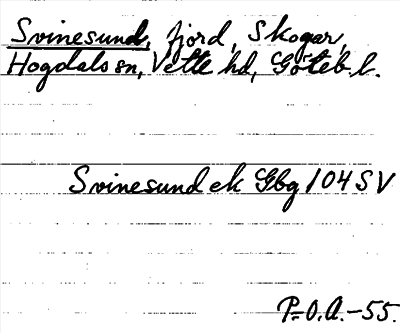 Svinesund, fjord, Skogar,
Hogdals sn, Vette hd, Göteb. l.
Svinesund ek Gbg 104 SV
P.O.A.-55.